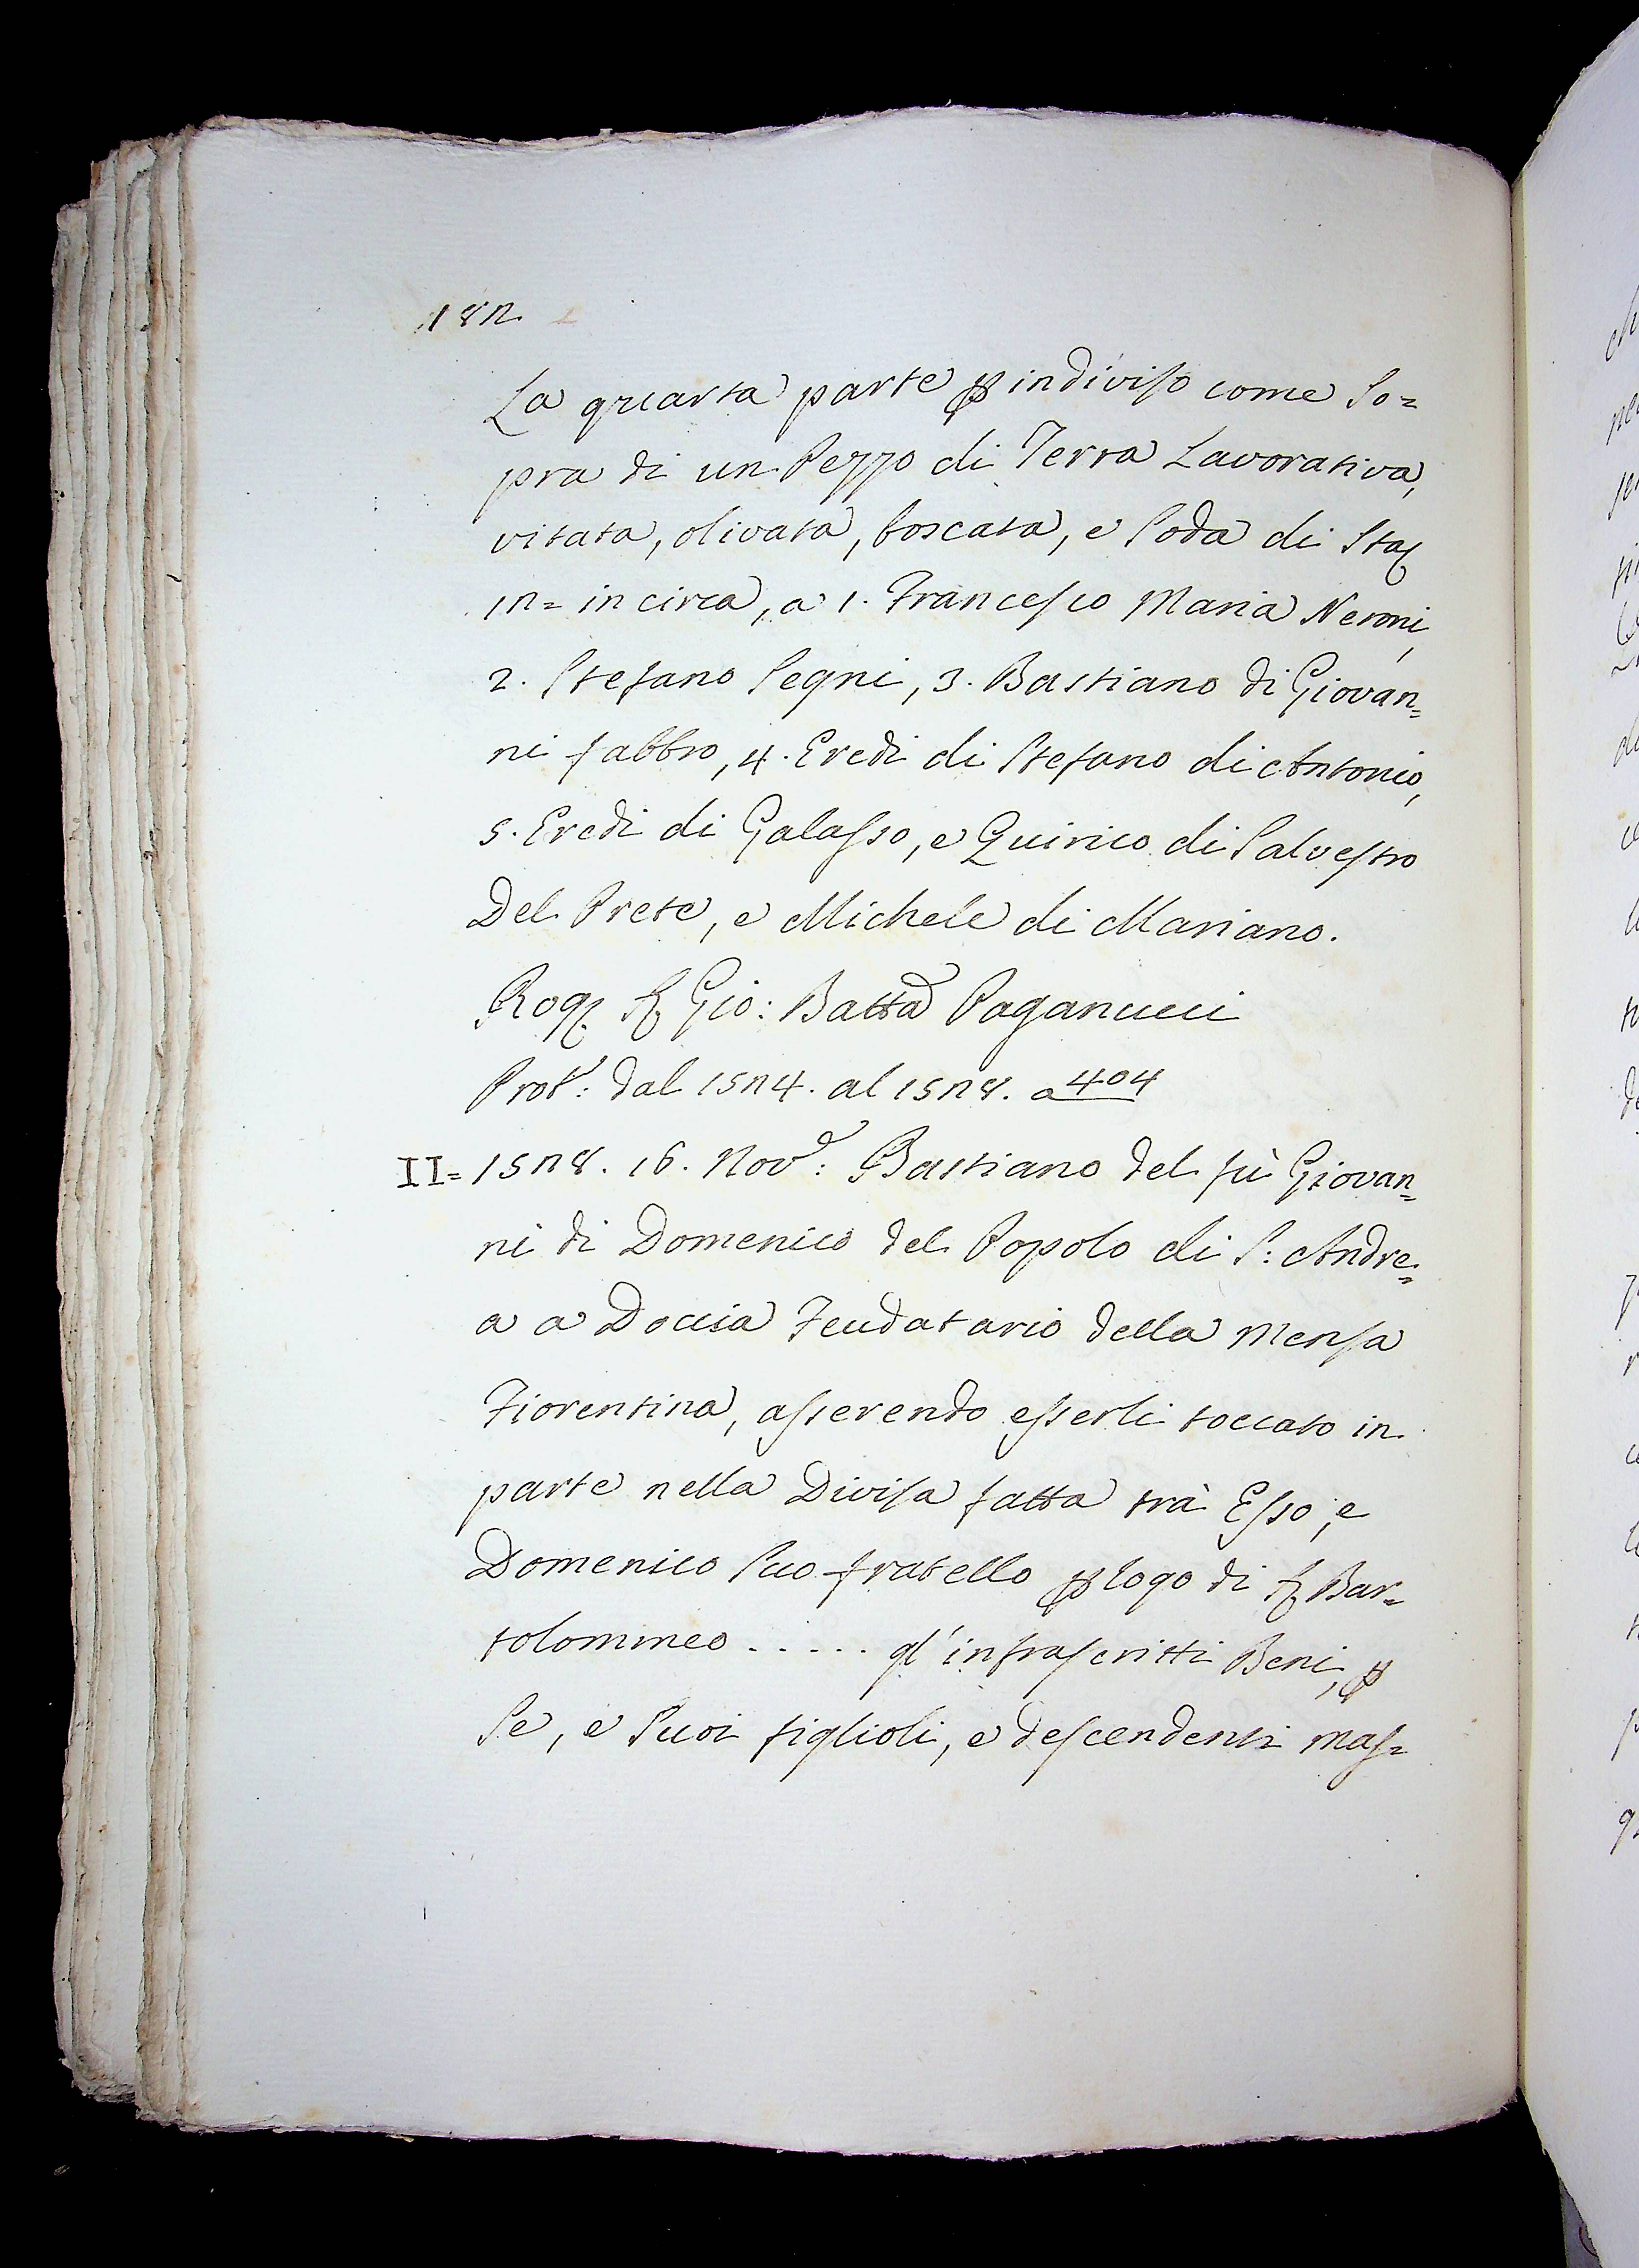 182
La quarta parte ꝑ indiviso come So=
pra di un Pezzo di Terra Lavorativa,
vitata, olivata, boscata, e Soda di Staj
12= in circa, a 1. Francesco Maria Neroni,
2. Stefano Segni, 3. Bastiano di Giovan=
ni fabbro, 4. Eredi di Stefano di Antonio,
5. Eredi di Galasso, e Quirico di Salvestro
Del Prete, e Michele di Mariano.
Rog. S. Gio: Batta Paganucci
Prot.: dal 1524. al 1528. a 404
II= 1528. 16. Nov.e: Bastiano del fù Giovan=
ni di Domenico del Popolo di S: Andre=
a a Doccia Feudatario della Mensa
Fiorentina, asserendo esserli toccato in
parte nella Divisa fatta trà Esso, e
Domenico Suo fratello ꝑ logo di S. Bar=
tolommeo ..... gl'infrascritti Beni, ꝑ
Se, e Suoi figlioli, e descendenti mas=